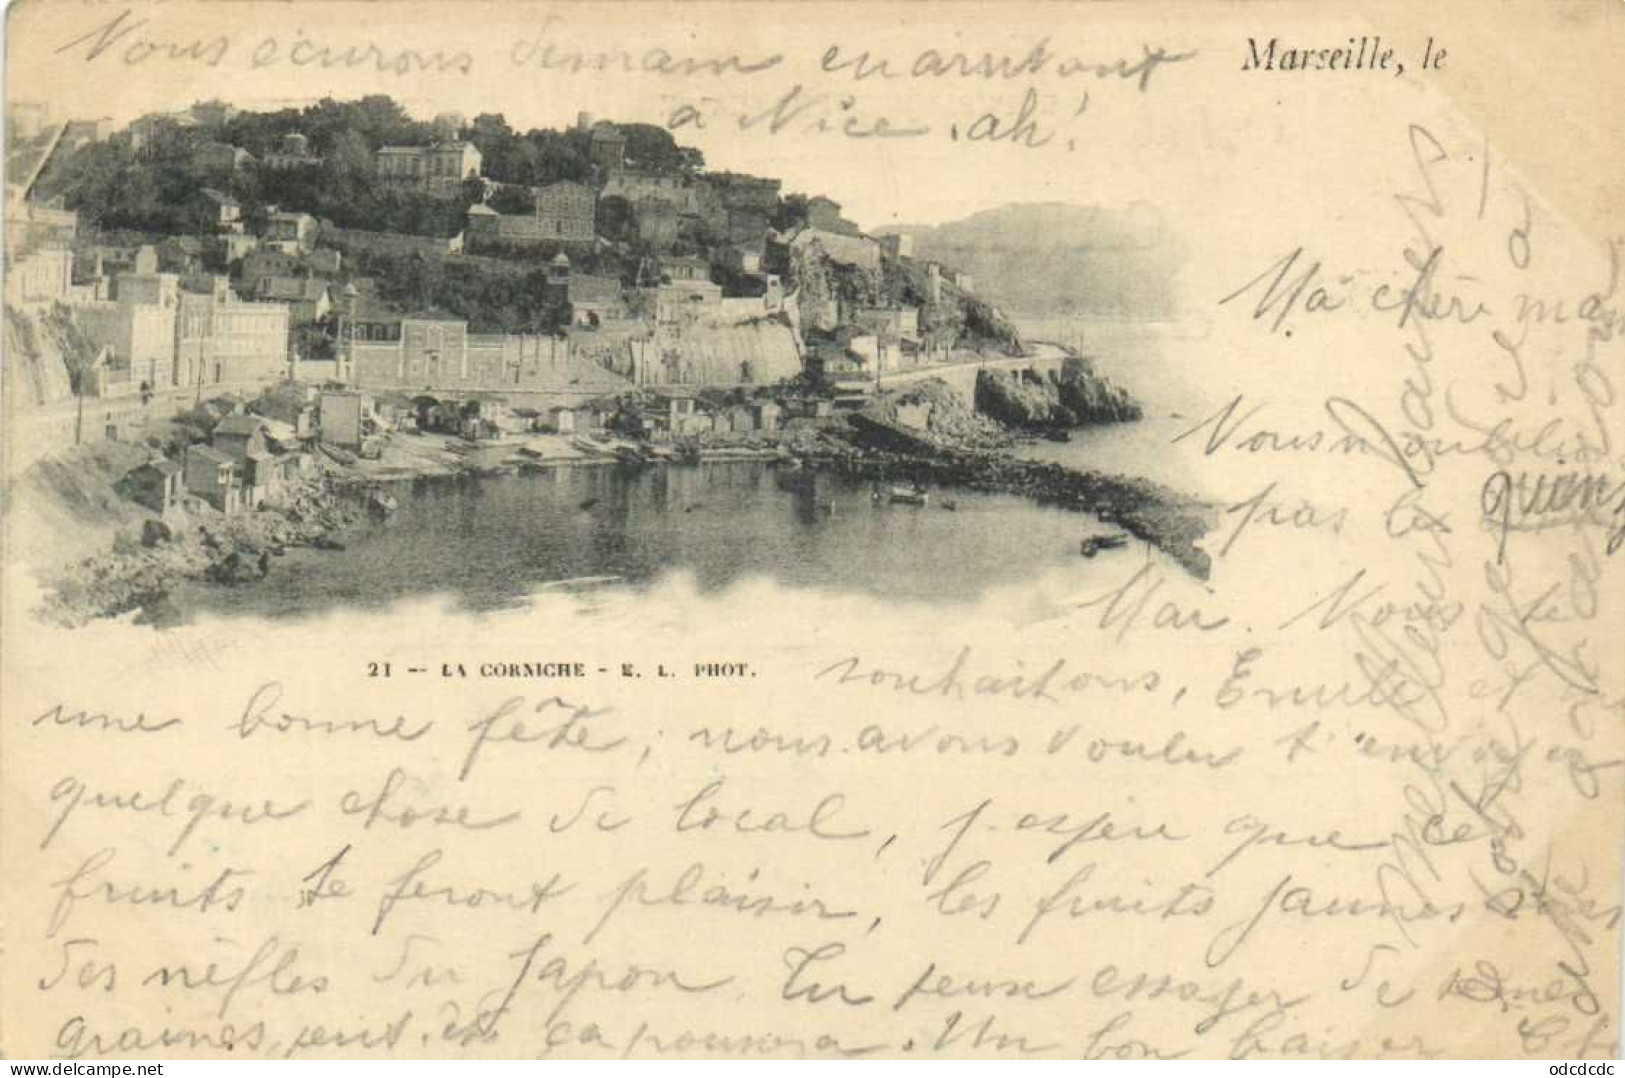 Nous écrirons demain en arrivant
à Nice, ah!
Marseille, le
Ma chère ma
Vous n'oublie
pas le quinz
Mai. Nous te
souhaitons, Emile et
une bonne fête; nous avons voulu t'envoyer
quelque chose de local, j'espère que ces
fruits te feront plaisir, les fruits jaunes sont
des nèfles du Japon. Tu peux essayer de semer
graines, peut être ça poussera. Un bon baiser
Meilleurs baisers
21 — LA CORNICHE - E. L. PHOT.
odcdcdc